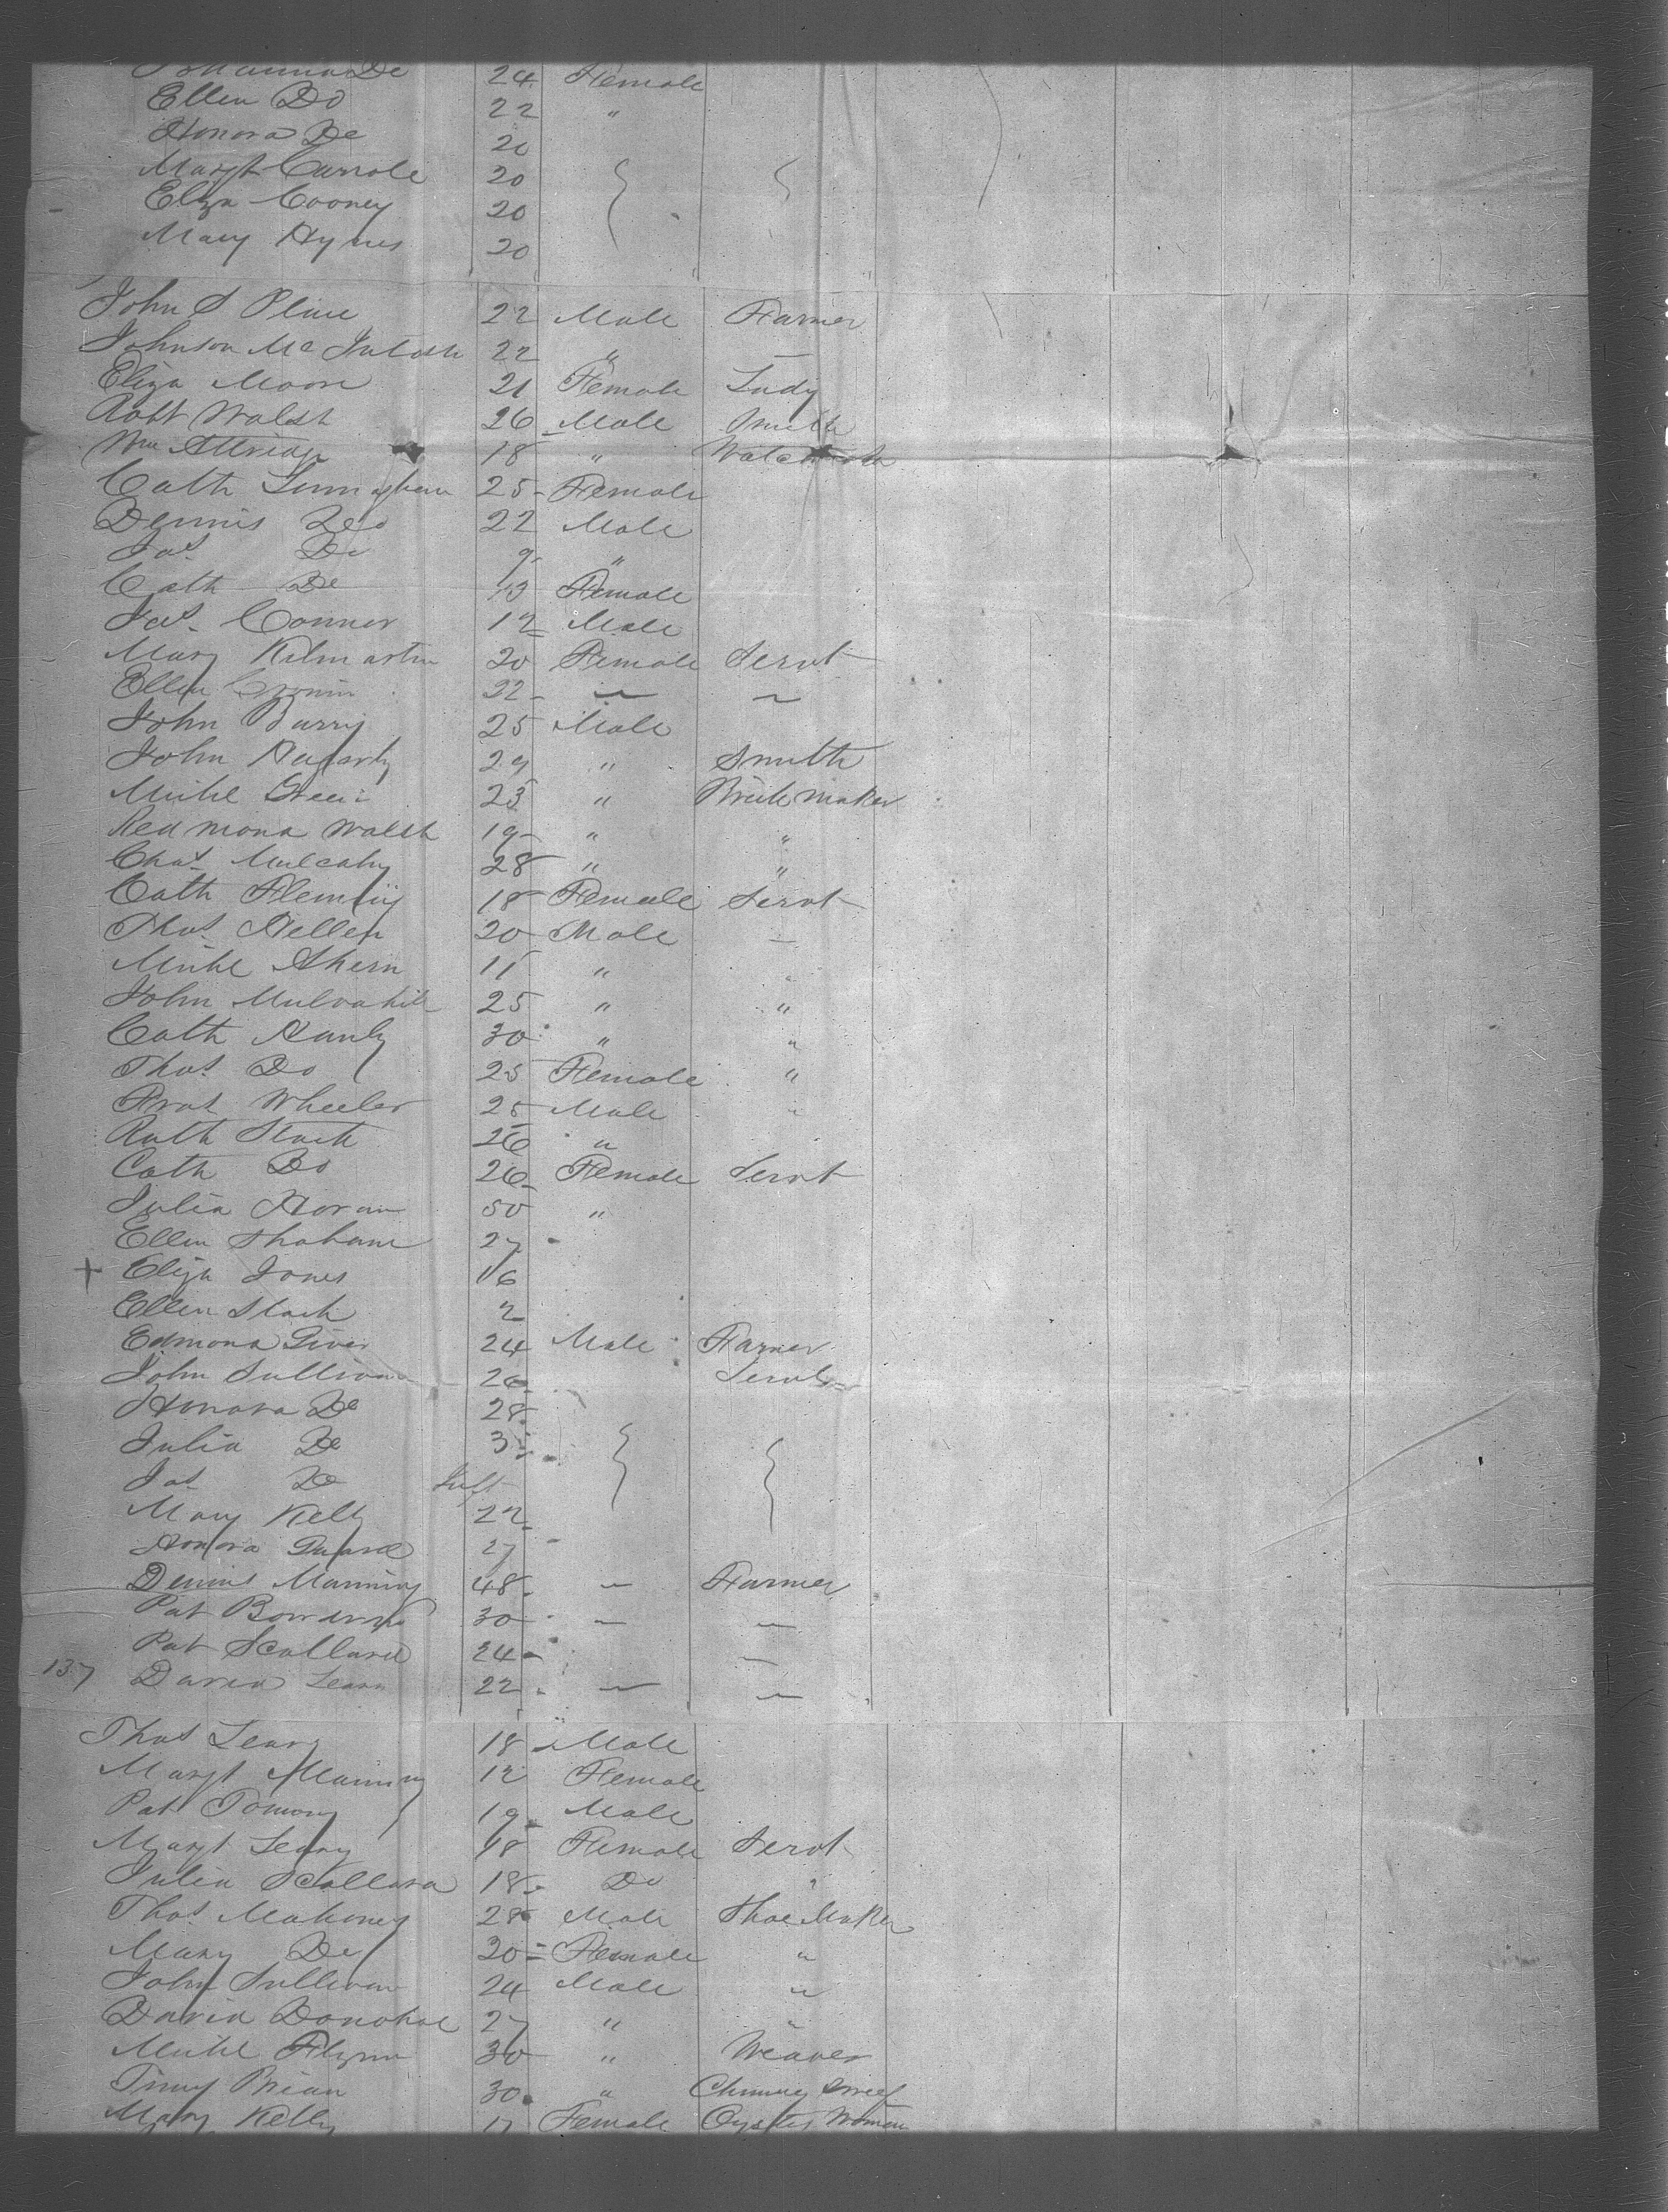 Johanna Do 24 Female
Ellen Do 22 "
Honora Do 20
Margt Carrole 20
Eliza Cooney 20
Mary Hynes 20
John S Place 22 Male Farmer
Johnson Mc Intosh 22 " —
Eliza Moore 21 Female Lady
Robt Walsh 26 Male Smith
Wm Attridge 18 "
Cath 25 Female
Dennis 22 Male
Jas. Do 9 "
Cath Do 13 Female
Jas. Connor 12 Male
Mary Kilmartin 20 Female Servt
Ellen Cronin 22 " "
John Barry 25 Male
John Hagarty 29 " Smith
Michl Green 23 " Brick maker
Redmond Walsh 19 " "
Chas. Mulcahy 28 " "
Cath Fleming 18 Female Servt
Thos. Hellen 20 Male —
Michl Ahern 11 " "
John Mulvahill 25 " "
Cath Hanly 30 " "
Thos. Do 25 Female "
Wheeler 25 Male "
Stack 26 "
Cath Do 26 Female Servt
Julia Horan 50 "
Ellen Shahane 27
+ Eliza Jones 16
Ellen Stack 2
Edmond 24 Male Farmer
John Sullivan 26 Servt
Honora Do 28
Julia Do 3
Jas. Do Inft
Mary Kelly 22
Honora 27
Dennis Manning 48 " Farmer
Pat 30 " "
Pat Scollard 24 "
137 David Leary 22 " "
Thos Leary 18 Male
Margt Manning 12 Female
Pat 19 Male
Margt Leary 18 Female Servt
Julia Scollard 18 Do "
Thos. Mahoney 28 Male Shoe Maker
Mary Do 20 Female "
John Sullivan 24 Male "
David Donohoe 27 " "
Michl Flynn 30 " Weaver
Timy Brien 30 " Chimney Sweep
Mary Kelly 17 Female Oyster Woman